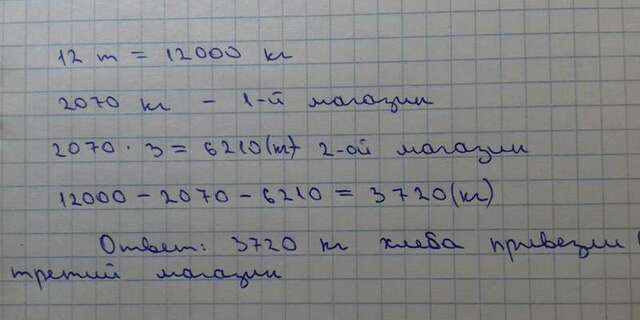 12 т = 12000 кг
2070 кг - 1-й магазин
2070 · 3 = 6210(т) 2-ой магазин
12000 - 2070 - 6210 = 3720(кг)
Ответ: 3720 кг хлеба привезли
третий магазин